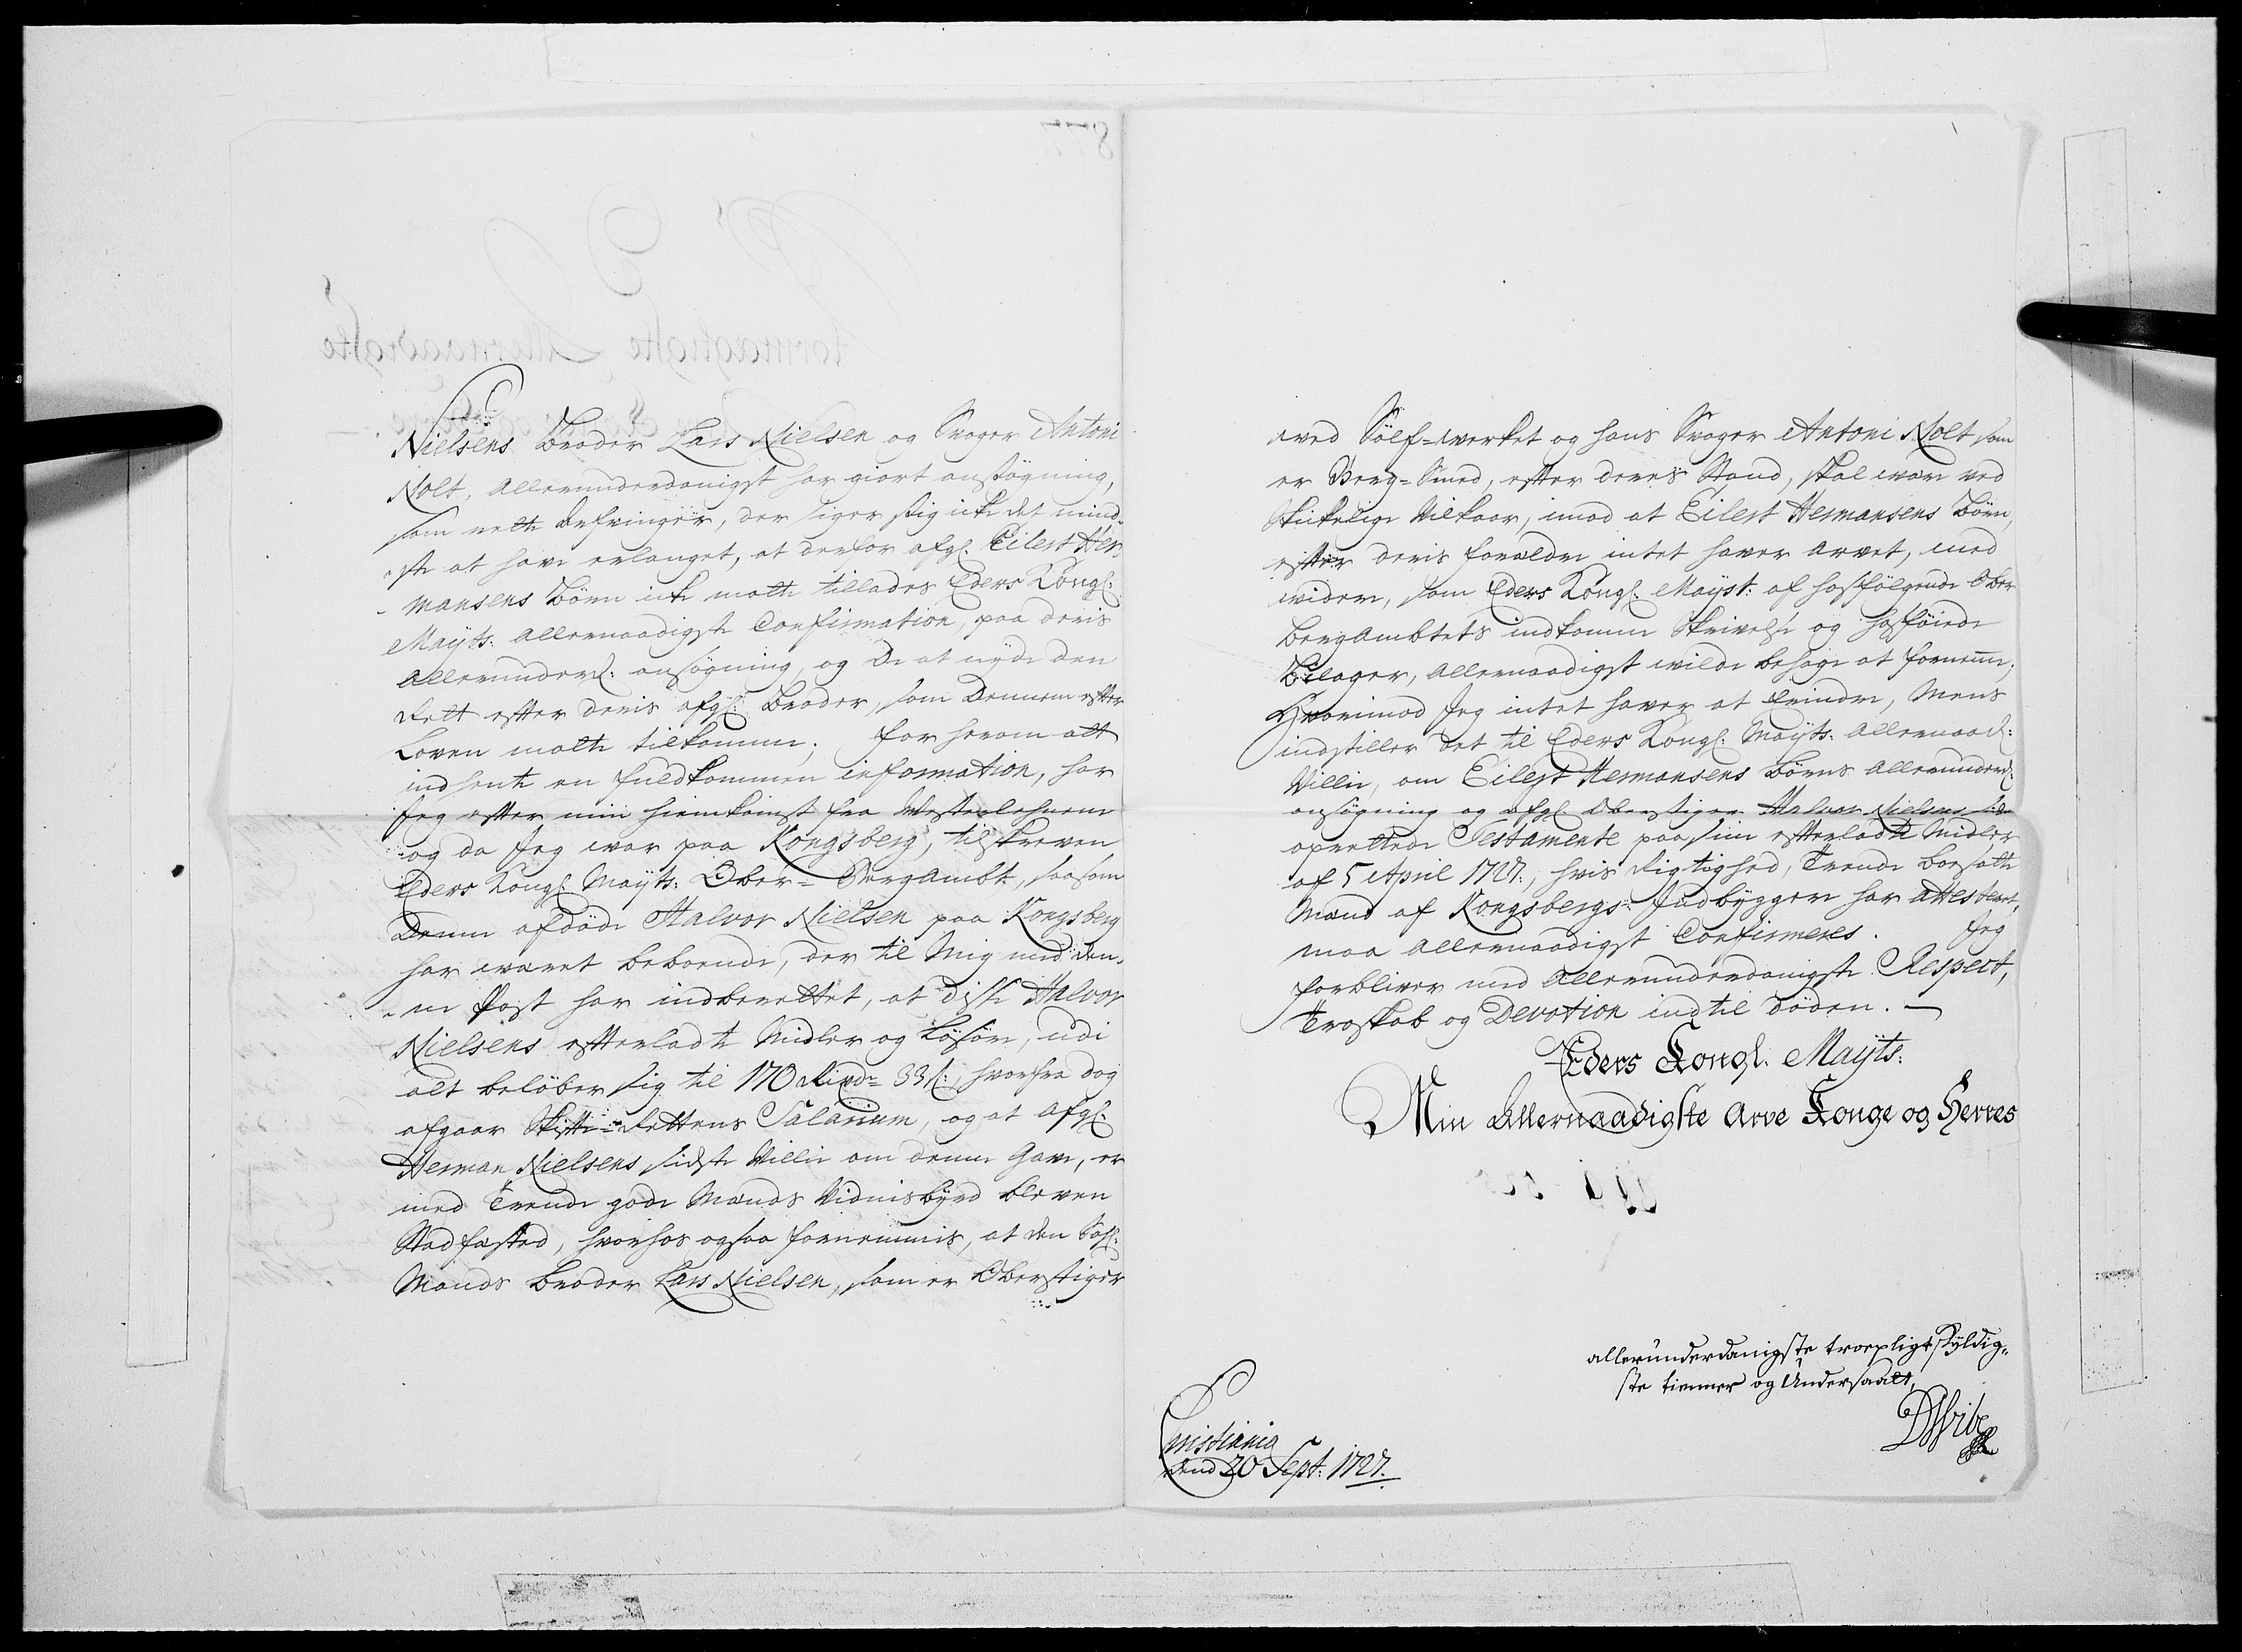 Nielsens Broder Lars Nielsen og Svoger Antoni
Nolt, Allerunderdanigst har giort ansøgning,
som rette Arfvinger, der siger sig icke det mind-
ste at have erlanget, at derfor afg. Eilert Her
mansens Børn icke motte tillades Eders Kongl:
Mayts: Allernaadigste Confirmation, paa deris
Allerunderd: ansøgning, og De at nyde den
Rett efter deris afg: Broder, som Dennem efter
Loven motte tilkomme; for herom alt
indhente en fuldkommen information, har
Jeg efter min hiemkomst fra Westerlehnene
og da Jeg war paa Kongsberg, tilskreven
Eders Kongl: Mayts: Ober-Bergambt, saasom
Denne afdøde Halvor Nielsen paa Kongsberg
har wæret beboende, der til Mig med den-
ne Post har indberettet, at disse Halvor
Nielsens efterladte Midler og Løsøre, udi
alt beløber sig til 170 Rixdr 33 s:, hvorfra dog
afgaar Skifte-Rettens Salarium, og at Afg:
Herman Nielsens sidste Villie om denne Gave, er
med Trende gode Mænds Vidnisbyrd bleven
Stadfæsted, hvorhos ogsaa fornemmis, at den Sahl:
Mands Broder Lars Nielsen, som er Oberstiger
wed Sølf-werket og hans Svoger Antoni Nolt som
er Berg-Smed, efter deres Stand, skal være ved
Skickelige Vilkaar, imod at Eilert Hermansens Børn,
efter deris forældre intet haver arvet, med
widere, som Eders Kongl: Mayst: af hosfølgende Ober
Bergambtets indkomne Skrivelse og hosføiede
Bilager, Allernaadigst wilde behage at fornemme;
Hvorimod Jeg intet haver at erindre, Mens
indstiller det til Eders Kongl: Mayts: Allernaad:
Villie, om Eilert Hermansens Børns Allerunderd:
ansøgning og afg. Oberstiger Halvor Nielsens
oprettede Testamente paa sine efterladte Midler
af 5 April 1727:, hvis Rigtighed, Trende boesatte
Mænd af Kongsbergs Indbyggere har attesteret,
maa Allernaadigst Confirmeres. Jeg
forbliver med Allerunderdanigste Respect,
Troskab og Devotion indtil døden. —
Eders Kongl. Mayts:
Min Allernaadigste Arve Konge og Herres
allerunderdanigste troepligt skyldig-
ste tienner og Undersaatt,
DVibe
Christiania
dend 20 Sept: 1727.